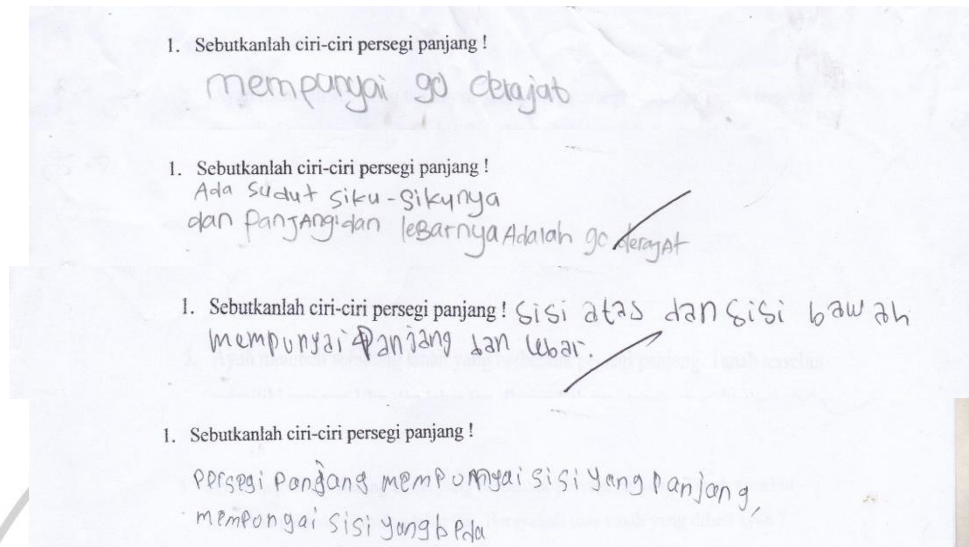 1. Sebutkanlah ciri-ciri persegi panjang !
mempunyai 90 derajat
1. Sebutkanlah ciri-ciri persegi panjang !
Ada sudut siku-sikunya
dan panjAng dan leBarnya Adalah 90 derajAt
1. Sebutkanlah ciri-ciri persegi panjang ! sisi atas dan sisi bawah
mempunyai panjang dan lebar.
1. Sebutkanlah ciri-ciri persegi panjang !
persegi panjang mempunyai sisi yang panjang,
mempongai sisi yang beda